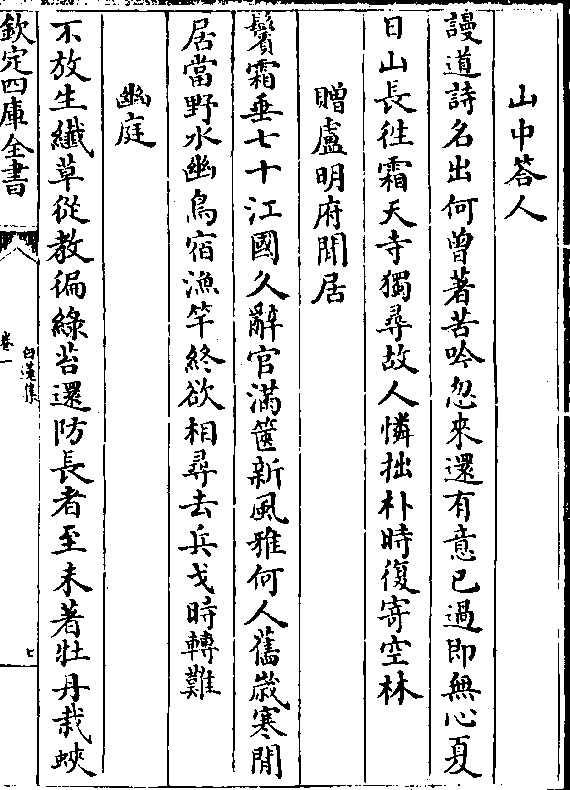 山中答人
謾道詩名出何曽著苦吟忽來還有意已過即無心夏
日山長徃霜天寺獨尋故人憐拙朴時復寄空林
贈盧明府閒居
鬢霜垂七十江國久辭官滿篋新風雅何人舊歳寒閒
居當野水幽鳥宿漁竿終欲相尋去兵戈時轉難
幽庭
不放生纎草從教徧緑苔還防長者至未著牡丹栽蛺
欽定四庫全書
白蓮集
卷一
七